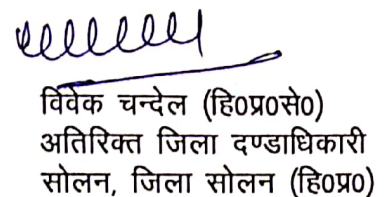 विवेक चन्देल (हि0प्र0से0)
अतिरिक्त जिला दण्डाधिकारी
सोलन, जिला सोलन (हि0प्र0)